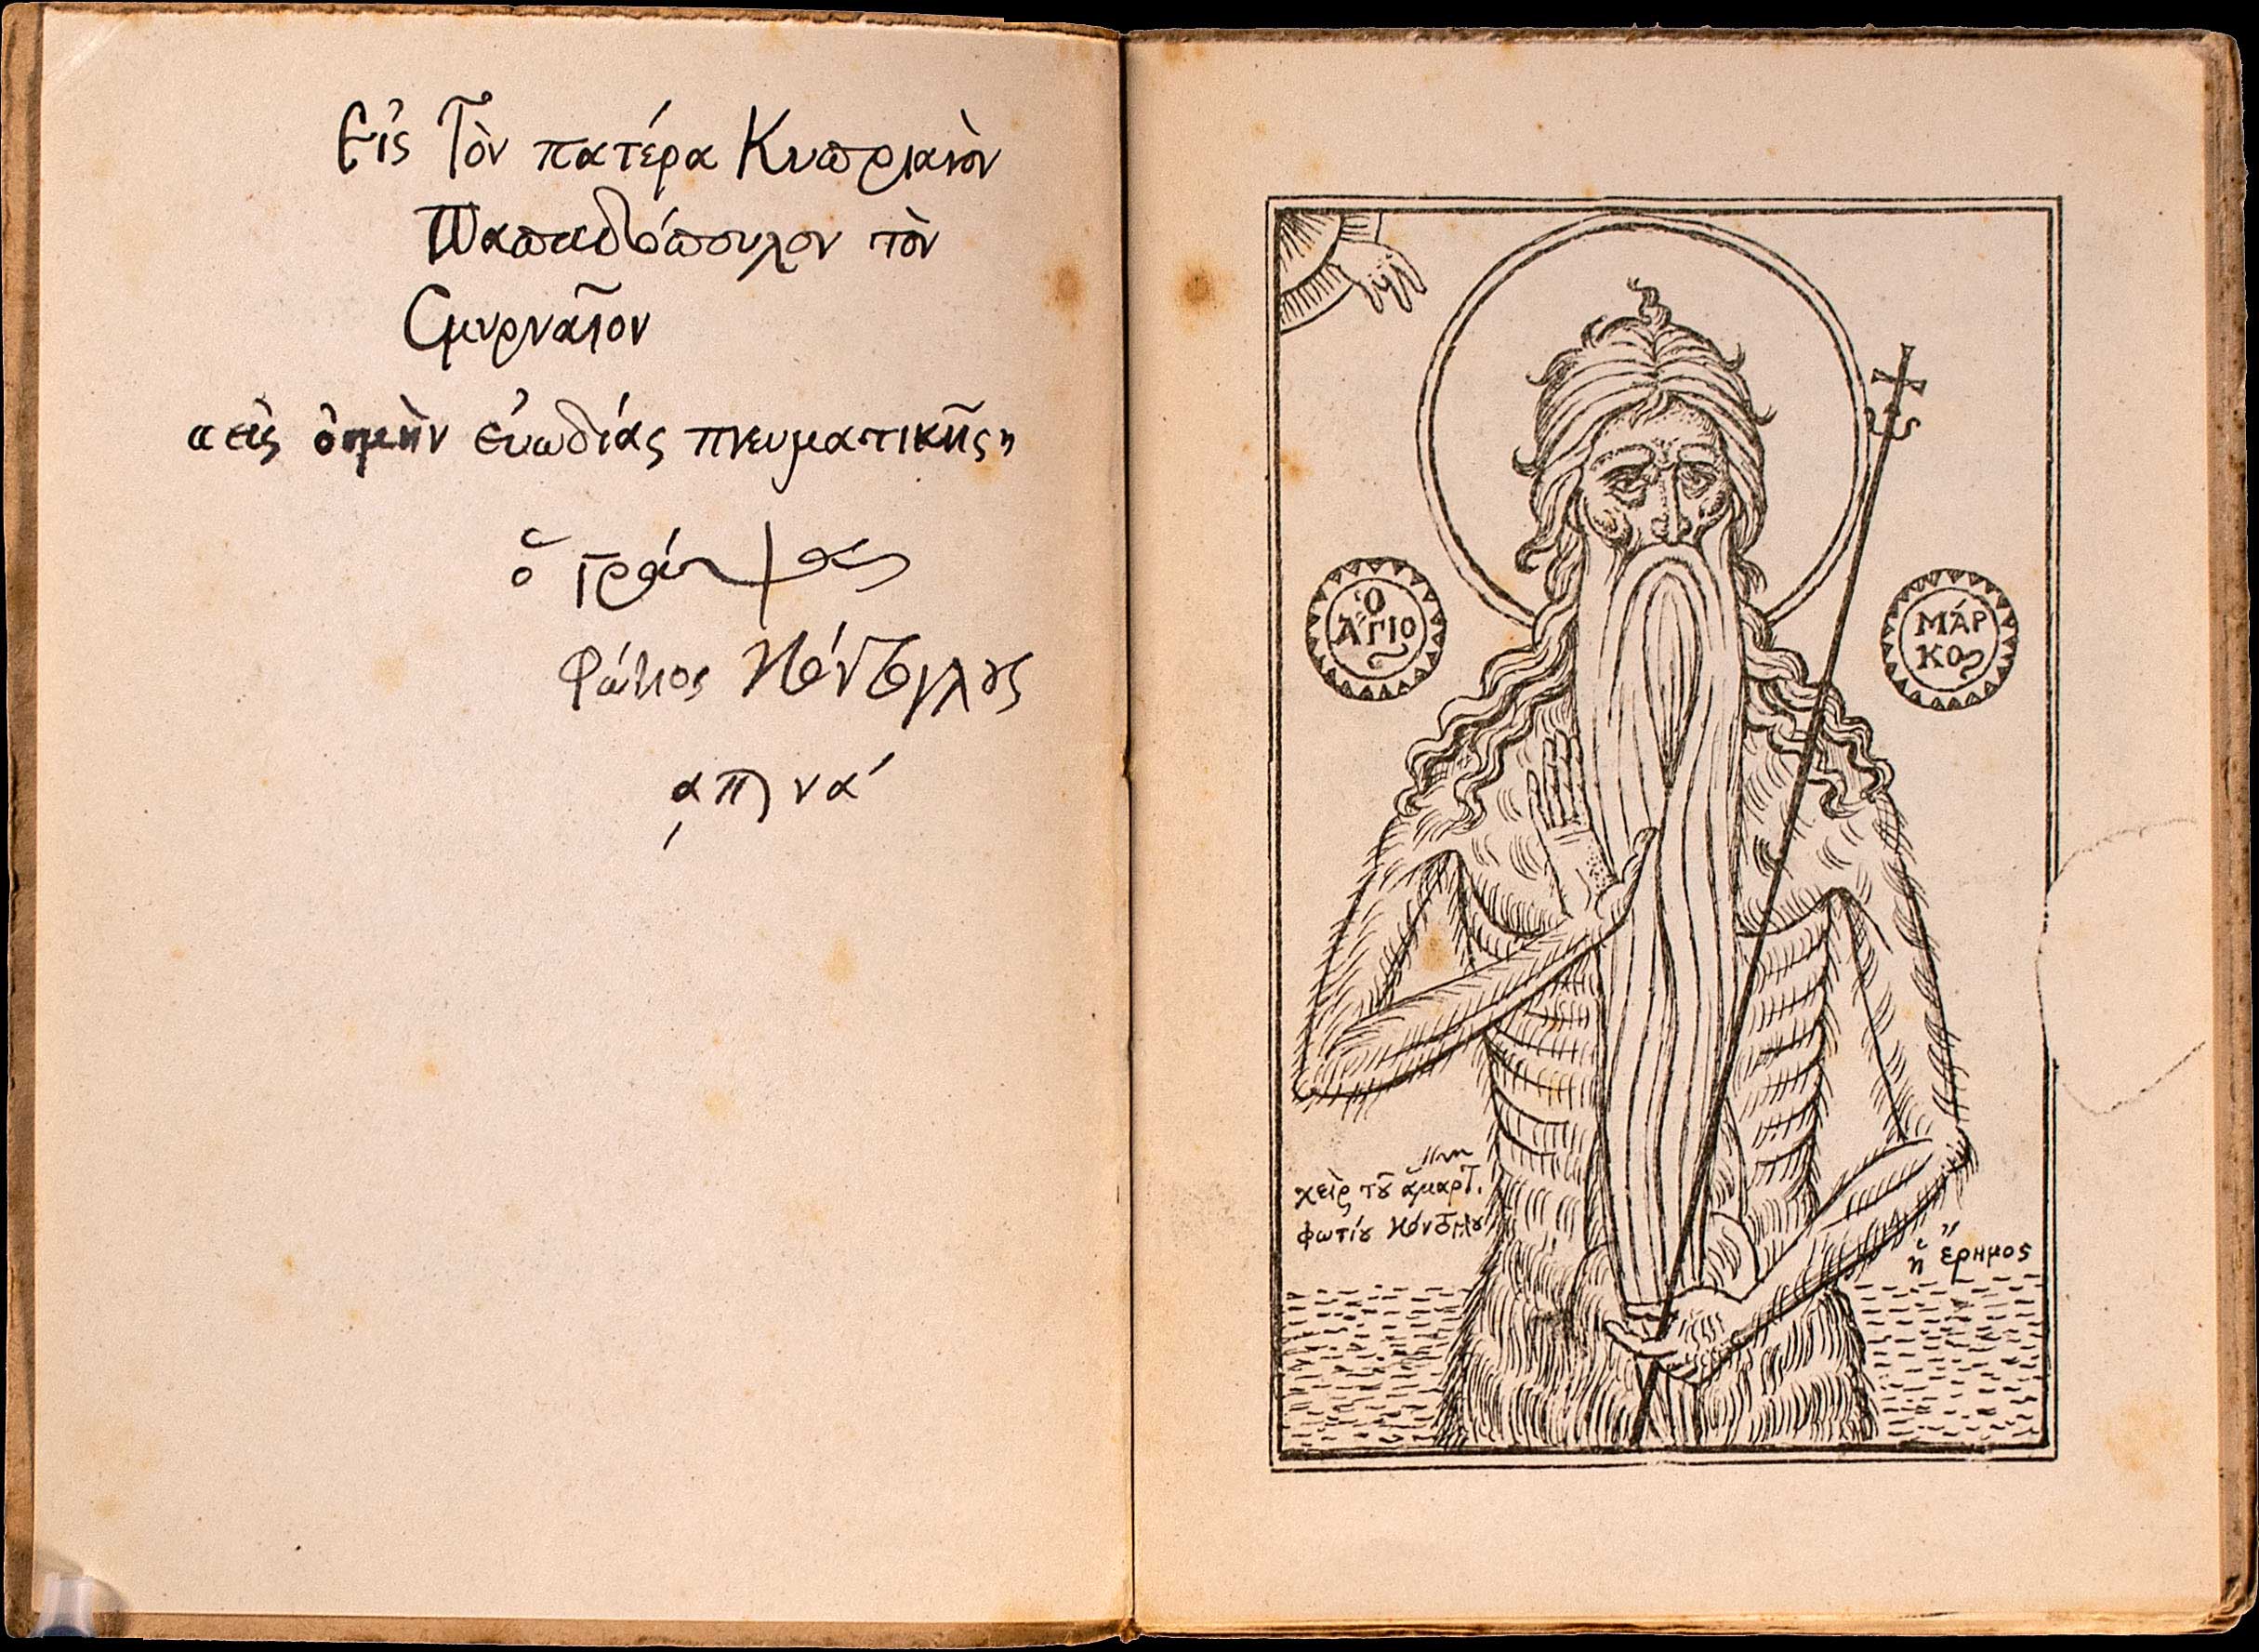 Εἰς Τὸν πατέρα Κυπριανὸν
Παπαδόπουλον τὸν
Σμυρναῖον
«εἰς ὀσμὴν εὐωδίας πνευματικῆς»
ὁ γράψας
Φώτιος Κόντογλους
͵απ νά
Ὁ
ἍΓΙΟς
ΜᾶΡ
ΚΟς
χεὶρ τȣ͂ ἁμαρτ.
φωτίȣ Κόντογλȣ
ἡ ἔρημος